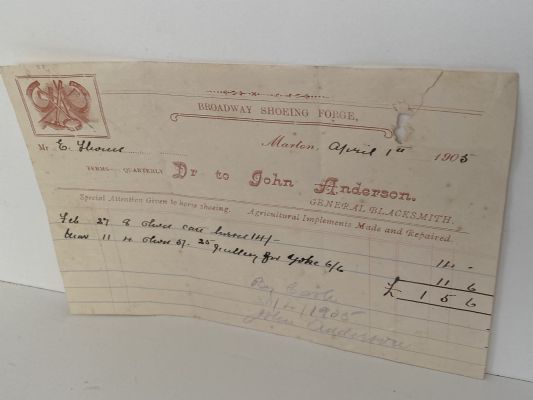 BROADWAY SHOEING FORGE,
Marton, April 1st 1905
Mr E.
TERMS— QUARTERLY Dr to John Anderson.
GENERAL BLACKSMITH.
Special Attention Given to horse shoeing. Agricultural Implements Made and Repaired.
Feb 27 8 shoes 14/-
11 4 shoes for Yoke 6/6 11 6
£ 1 5 6
By Cash
1905
John Anderson